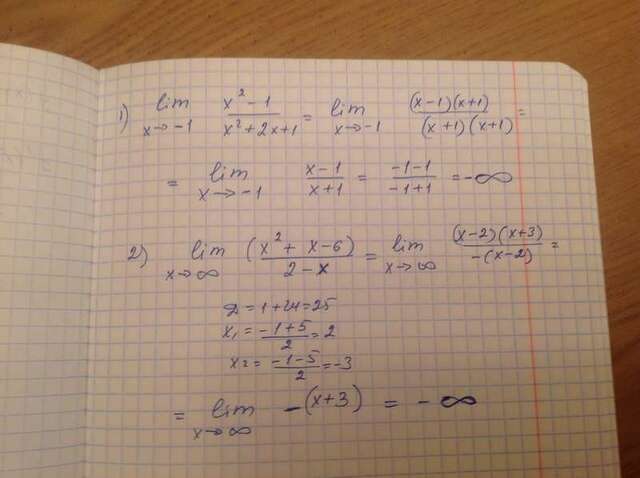 1) lim x→-1 (x² - 1)/(x² + 2x + 1) = lim x→-1 (x-1)(x+1)/(x+1)(x+1) =
= lim x→-1 (x-1)/(x+1) = (-1-1)/(-1+1) = -∞
2) lim x→∞ (x² + x - 6)/(2 - x) = lim x→∞ (x-2)(x+3)/-(x-2) =
D = 1 + 24 = 25
x₁ = (-1+5)/2 = 2
x₂ = (-1-5)/2 = -3
= lim x→∞ -(x+3) = -∞